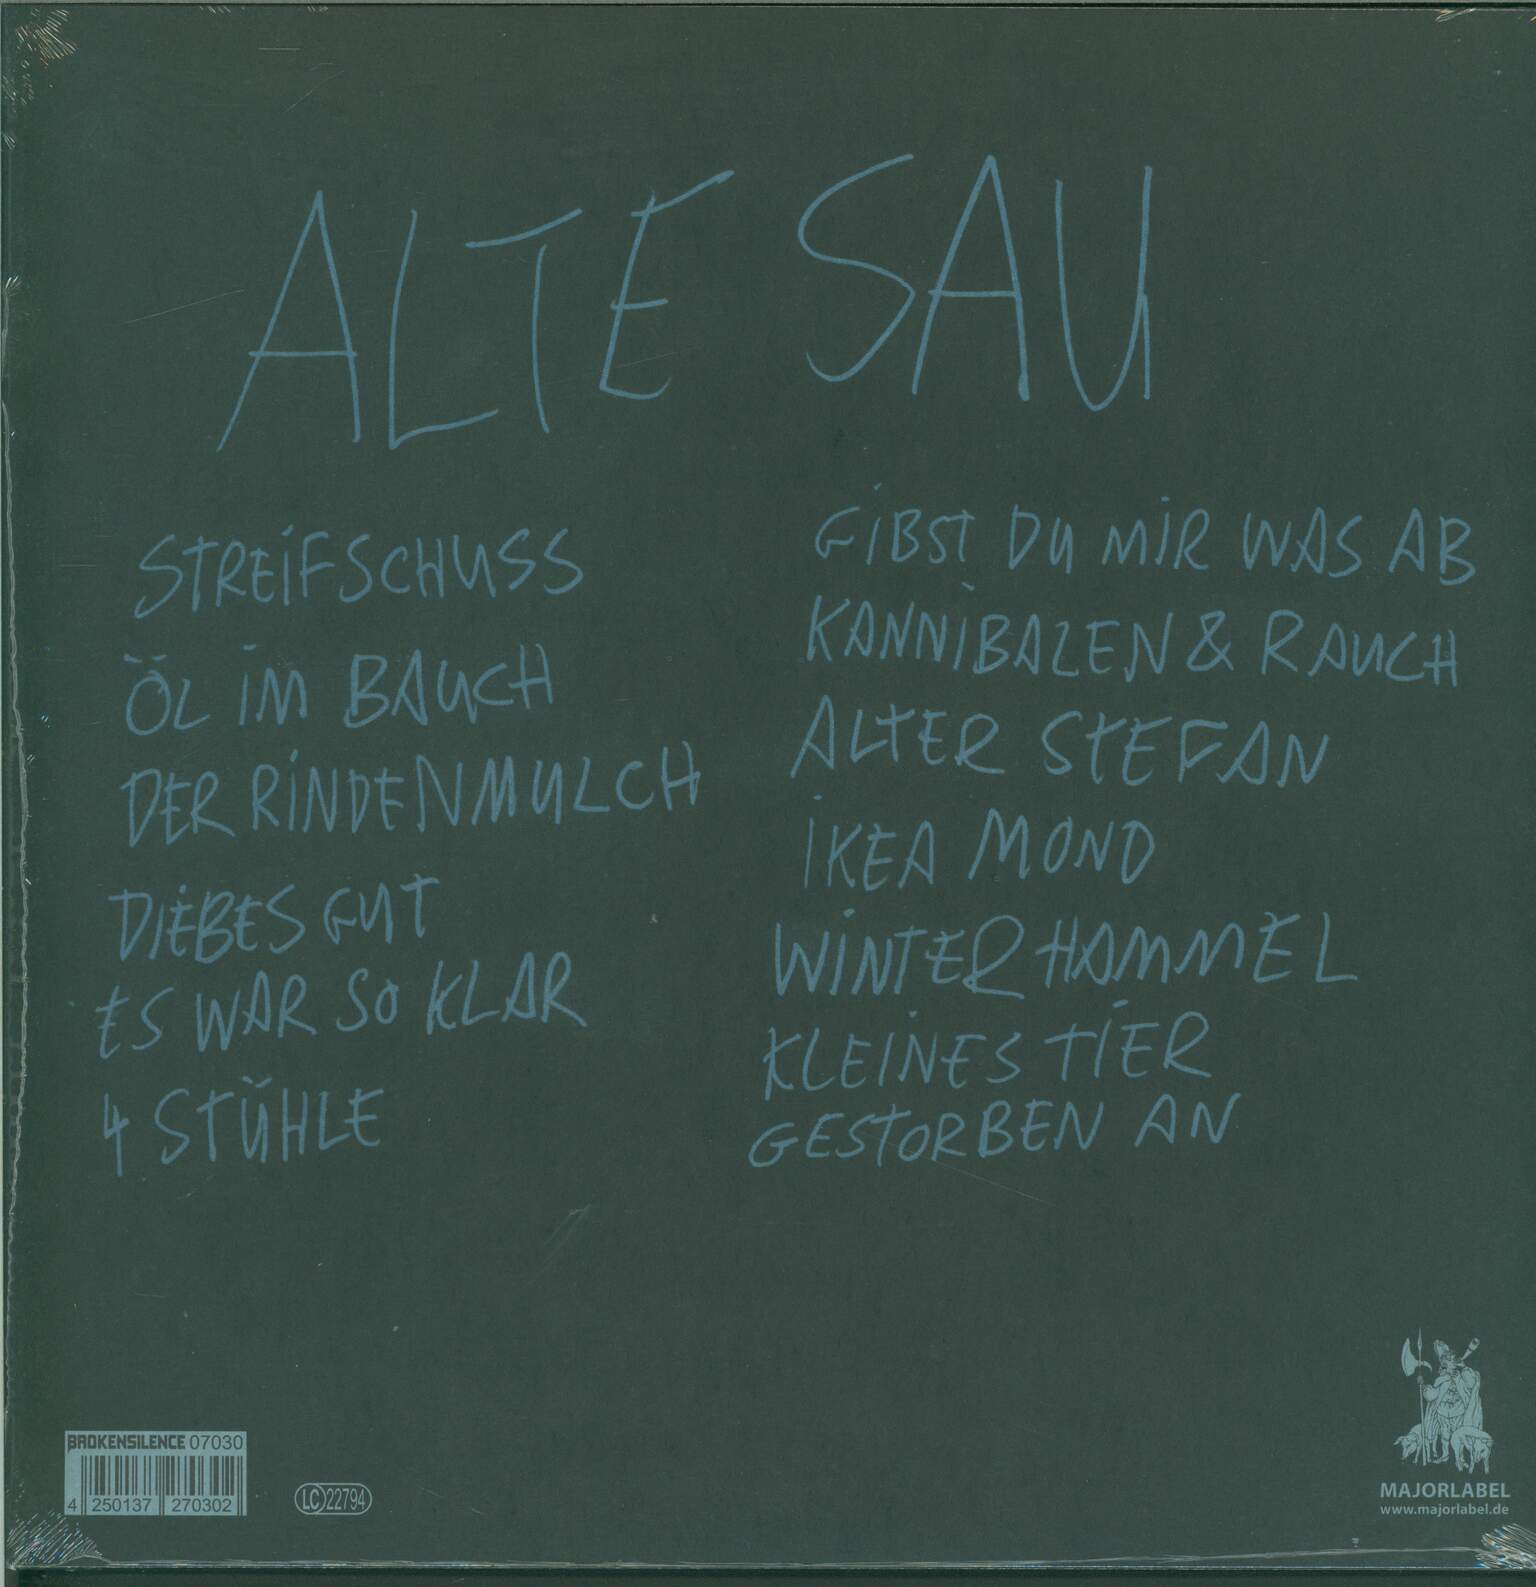 ALTE SAU
STREIFSCHUSS
ÖL IM BAUCH
DER RINDENMULCH
DIEBES GUT
ES WAR SO KLAR
4 STÜHLE
GIBST DU MIR WAS AB
KANNIBALEN & RAUCH
ALTER STEFAN
IKEA MOND
WINTER HAMMEL
KLEINES TIER
GESTORBEN AN
BROKENSILENCE 07030
4 250137 270302
LC 22794
MAJORLABEL
www.majorlabel.de